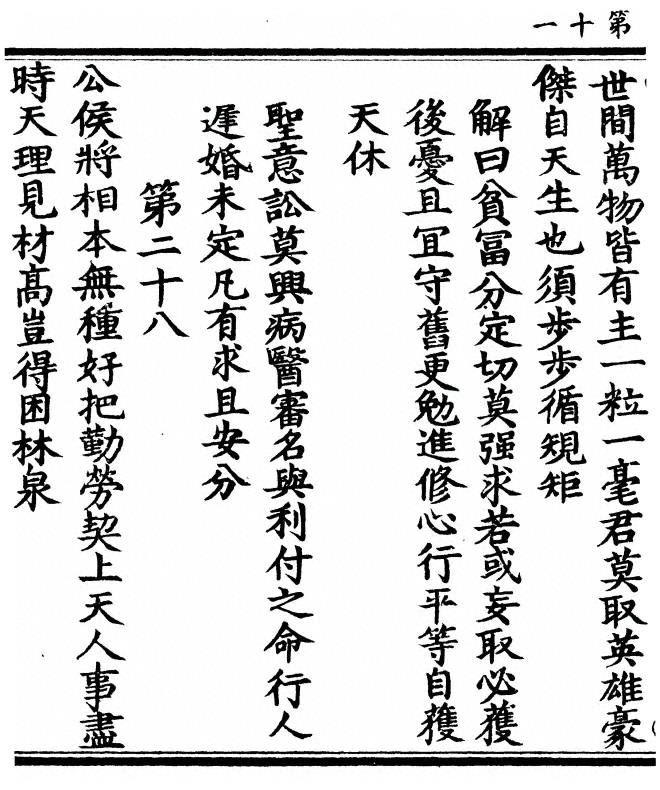 第十一
世間萬物皆有主一粒一毫君莫取英雄豪
傑自天生也須歩歩循規矩
解曰貧冨分定切莫强求若或妄取必獲
後憂且冝守舊更勉進修心行平等自獲
天休
聖意訟莫興病醫審名與利付之命行人
遲婚未定凡有求且安分
第二十八
公侯將相本無種好把勤勞契上天人事盡
時天理見材髙豈得困林泉